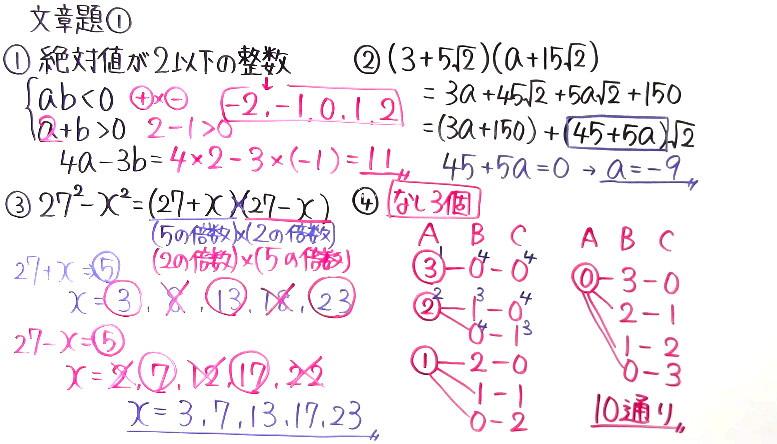 文章題①
① 絶対値が2以下の整数
ab<0 ⊕×⊖ -2, -1, 0, 1, 2
a+b>0 2-1>0
4a-3b=4×2-3×(-1)=11
② (3+5√2)(a+15√2)
=3a+45√2+5a√2+150
=(3a+150)+(45+5a)√2
45+5a=0 → a=-9
③ 27²-x²=(27+x)(27-x)
(5の倍数)×(2の倍数)
(2の倍数)×(5の倍数)
27+x=⑤
x=3, 8, 13, 18, 23
27-x=⑤
x=2, 7, 12, 17, 22
x=3, 7, 13, 17, 23
④ なし3個
A B C
3¹-0⁴-0⁴
2²-1³-0⁴
0⁴-1³
1-2-0
1-1
0-2
A B C
0-3-0
2-1
1-2
0-3
10通り